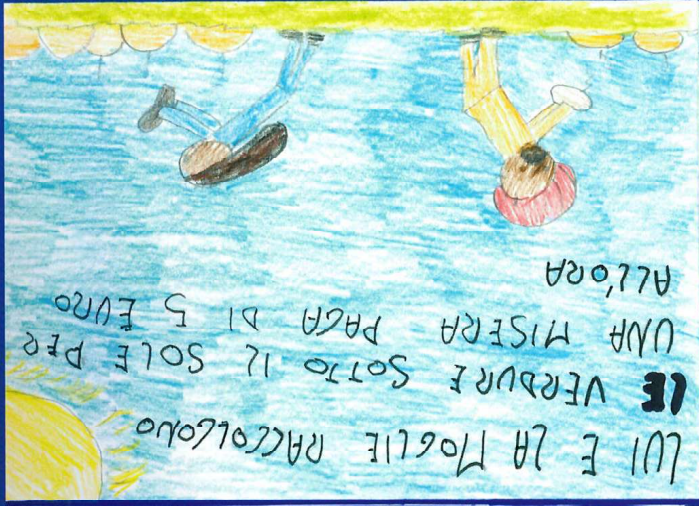 LUI E LA MOGLIE RACCOLGONO
LE VERDURE SOTTO IL SOLE PER
UNA MISERA PAGA DI 5 EURO
ALL'ORA